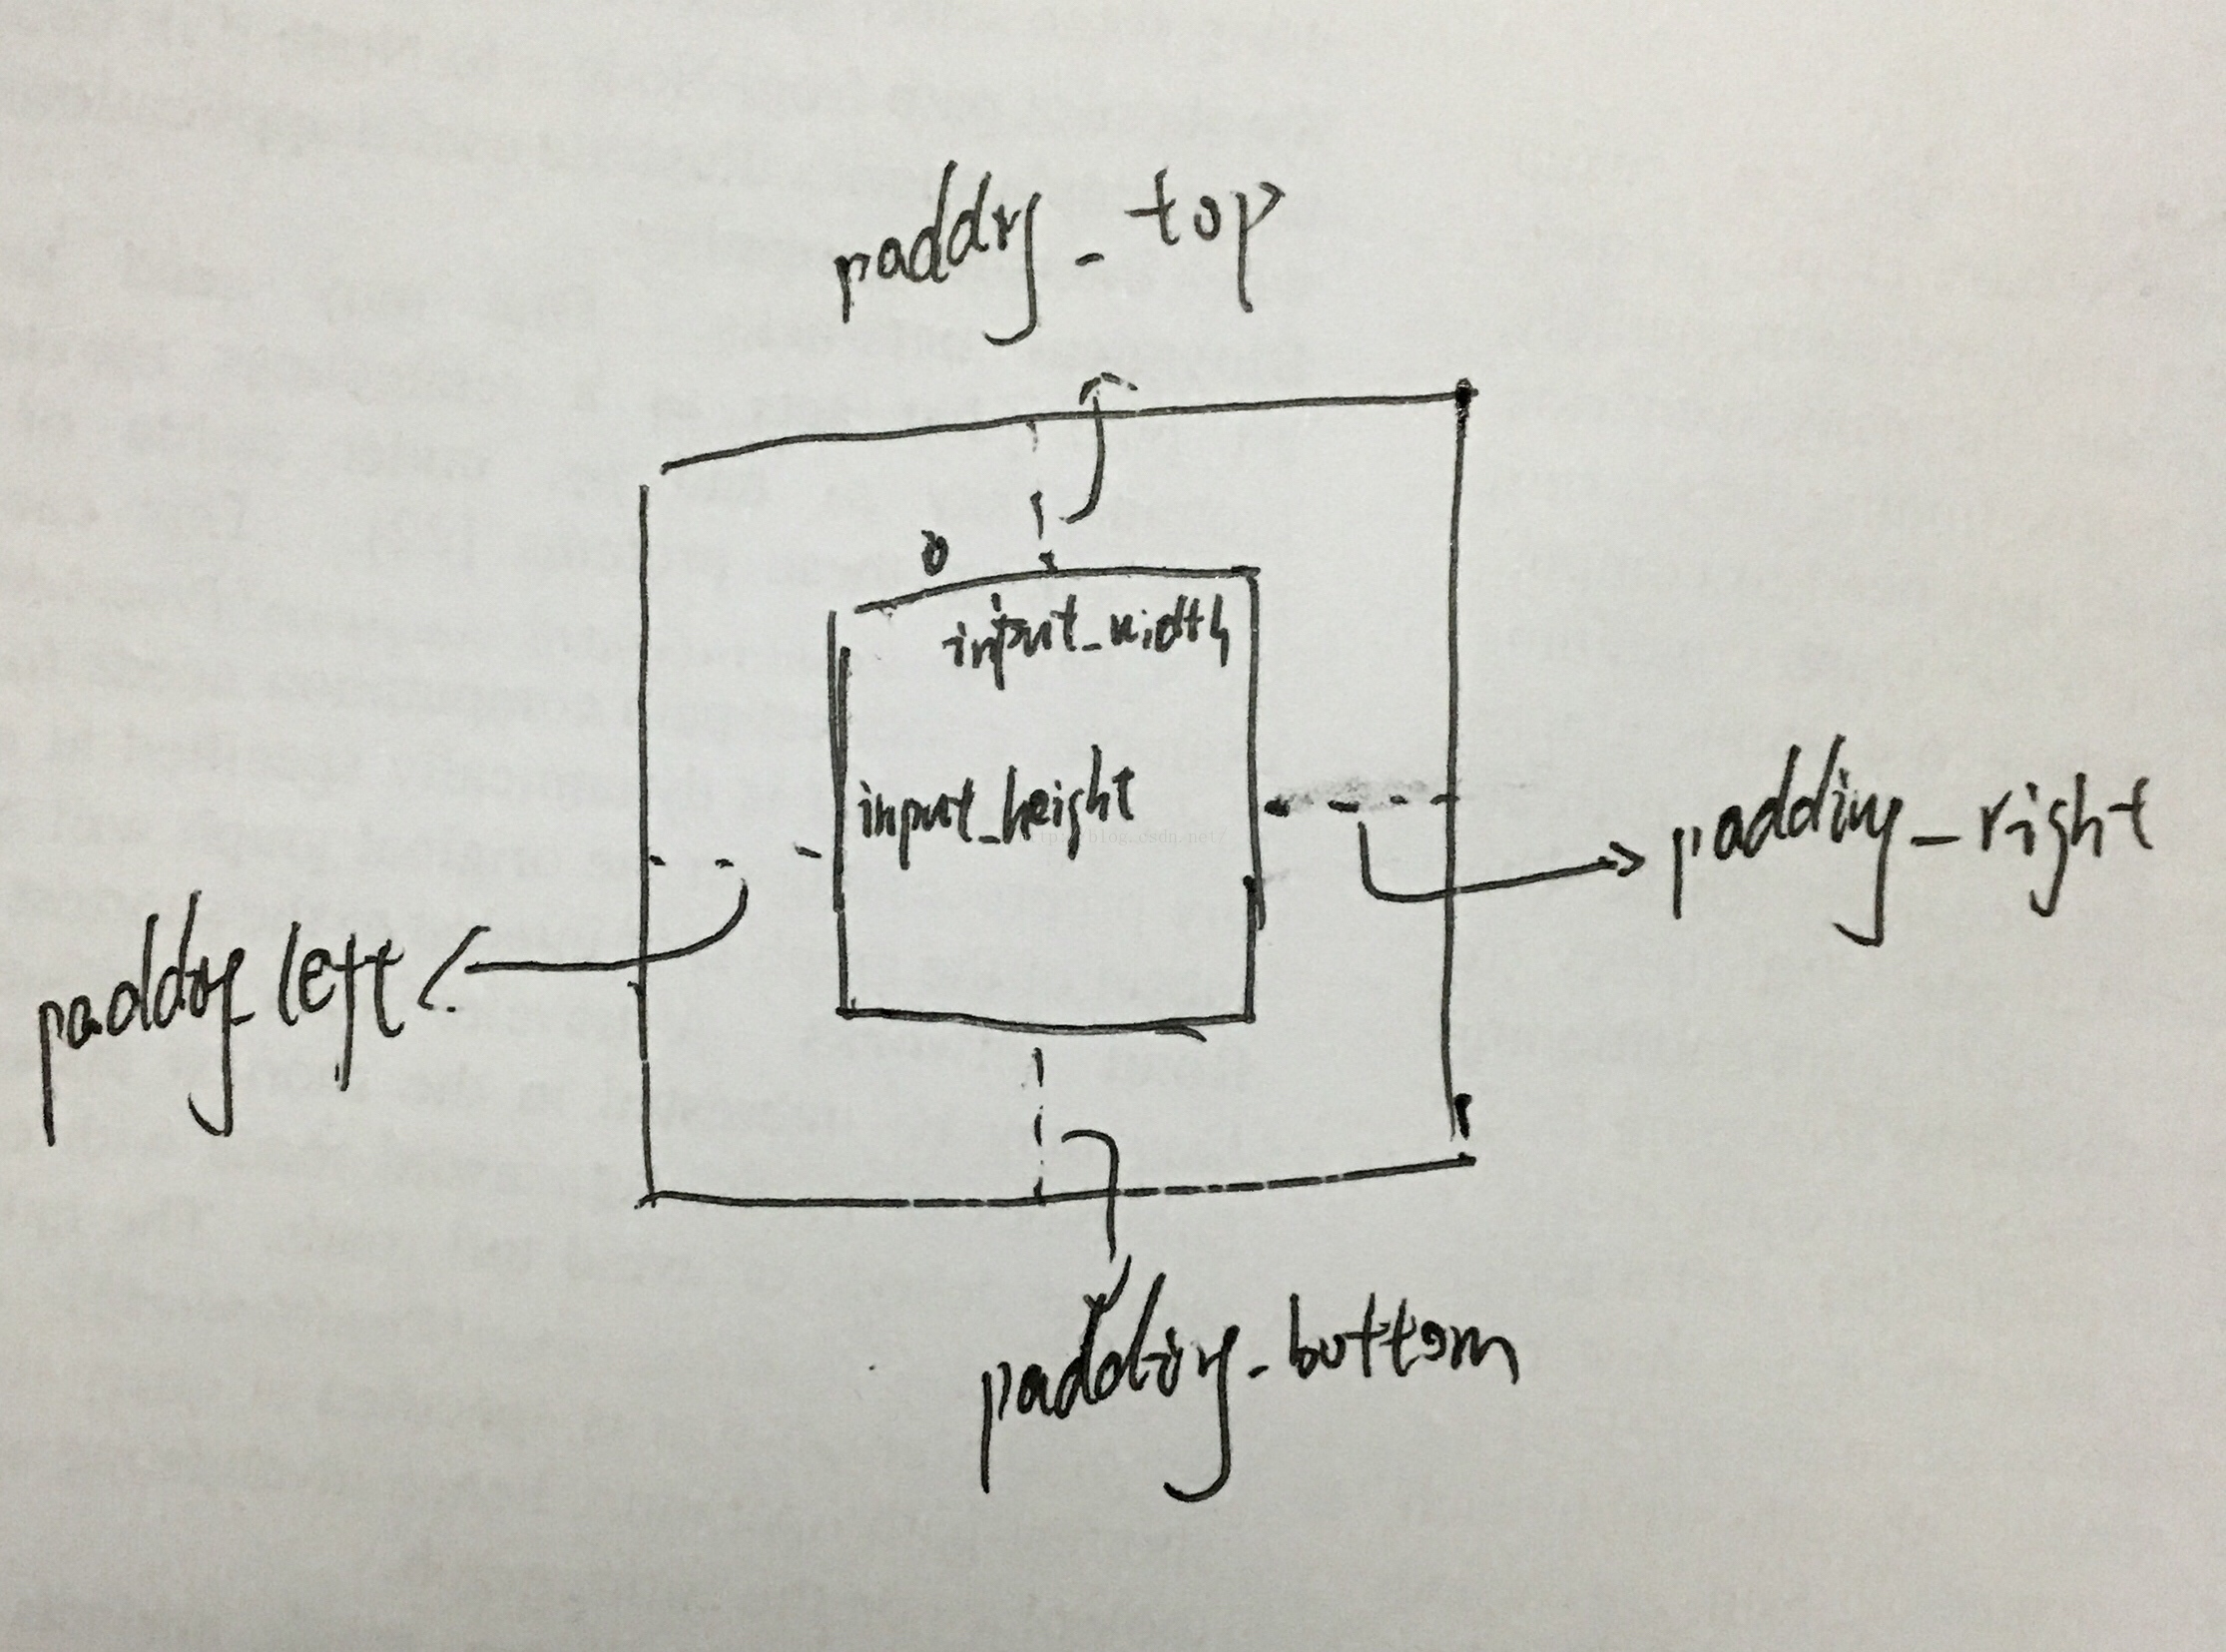 padding_top
0
input_width
input_height
padding_right
padding_left
padding_bottom